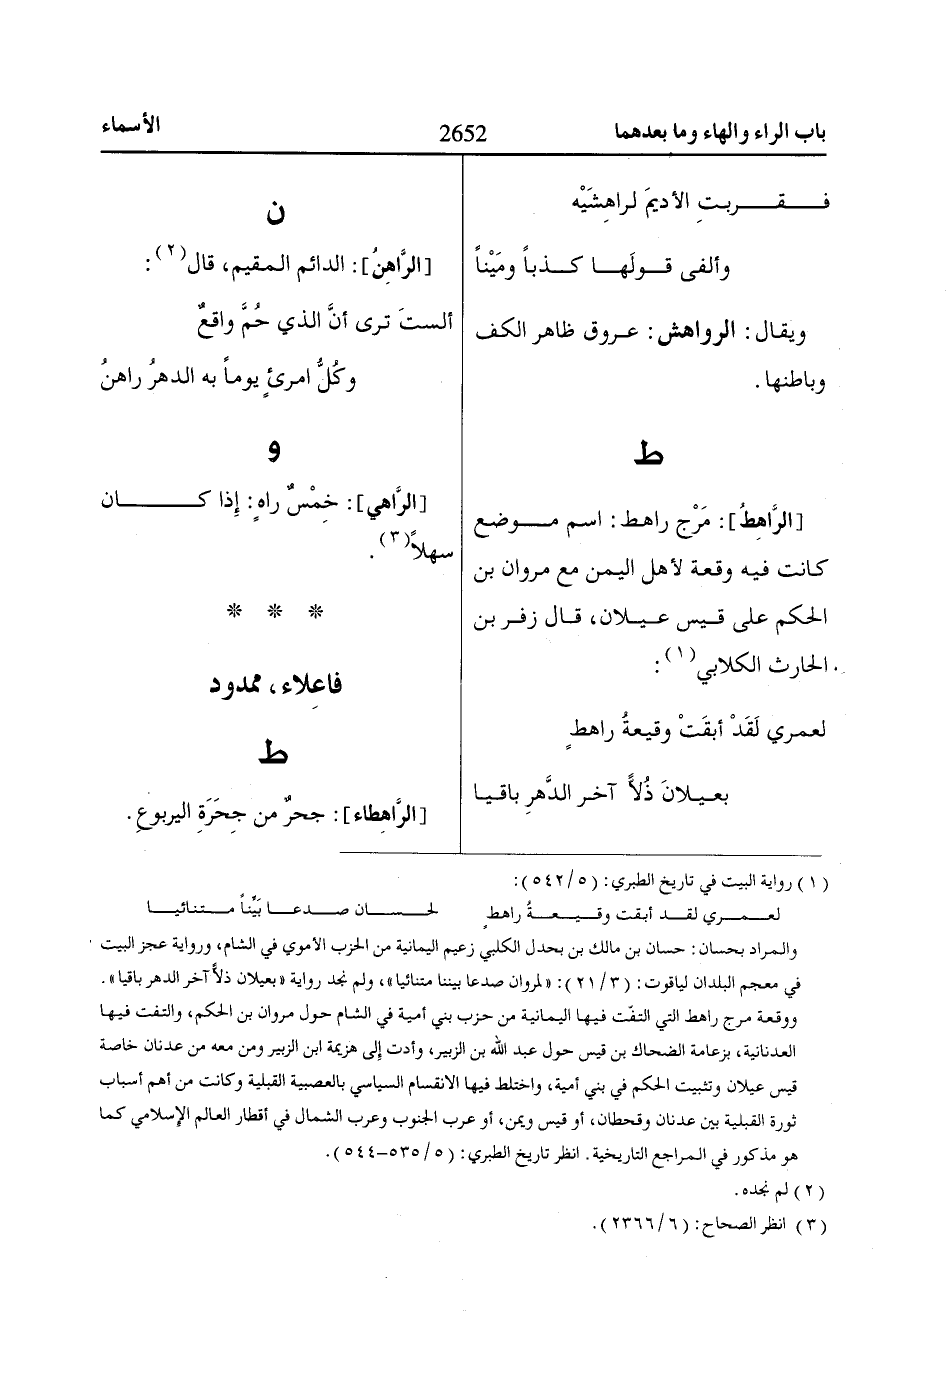 باب الراء والهاء وما بعدهما
2652
الأسماء
فـقـربتِ الأديمَ لراهِشَيْه
وألفى قولَها كذباً ومَيْناً
ويقال: الرواهش: عروق ظاهر الكف
وباطنها.
ط
[الرَّاهِطُ]: مَرْج راهط: اسم موضع
كانت فيه وقعة لأهل اليمن مع مروان بن
الحكم على قيس عيلان، قال زفر بن
الحارث الكلابي(١):
لعمري لَقَدْ أبقَتْ وقيعةُ راهطٍ
بعيلانَ ذُلاًّ آخر الدَّهرِ باقيا
ن
[الرَّاهِنُ]: الدائم المقيم، قال(٢):
ألستَ ترى أنَّ الذي حُمَّ واقعٌ
وكُلُّ امرئٍ يوماً به الدهرُ راهنُ
و
[الرَّاهي]: خِمْسٌ راهٍ: إذا كان
سهلاً(٣).
* * *
فاعِلاء، ممدود
ط
[الرَّاهِطاء]: جحرٌ من جِحَرَةِ اليربوعِ.
(١) رواية البيت في تاريخ الطبري: (٥/ ٥٤٢):
لعمري لقد أبقت وقيعةُ راهطٍ لحسان صدعا بَيِّناً متنائيا
والمراد بحسان: حسان بن مالك بن بحدل الكلبي زعيم اليمانية من الحزب الأموي في الشام، ورواية عجز البيت
في معجم البلدان لياقوت: (٣/ ٢١): «لمروان صدعا بيننا متنائيا»، ولم نجد رواية «بعيلان ذلاًّ آخر الدهر باقيا».
ووقعة مرج راهط التي التفّت فيها اليمانية من حزب بني أمية في الشام حول مروان بن الحكم، والتفت فيها
العدنانية، بزعامة الضحاك بن قيس حول عبد الله بن الزبير، وأدت إلى هزيمة ابن الزبير ومن معه من عدنان خاصة
قيس عيلان وتثبيت الحكم في بني أمية، واختلط فيها الانقسام السياسي بالعصبية القبلية وكانت من أهم أسباب
ثورة القبلية بين عدنان وقحطان، أو قيس ويمن، أو عرب الجنوب وعرب الشمال في أقطار العالم الإسلامي كما
هو مذكور في المراجع التاريخية. انظر تاريخ الطبري: (٥/ ٥٣٥-٥٤٤).
(٢) لم نجده.
(٣) انظر الصحاح: (٦/ ٢٣٦٦).